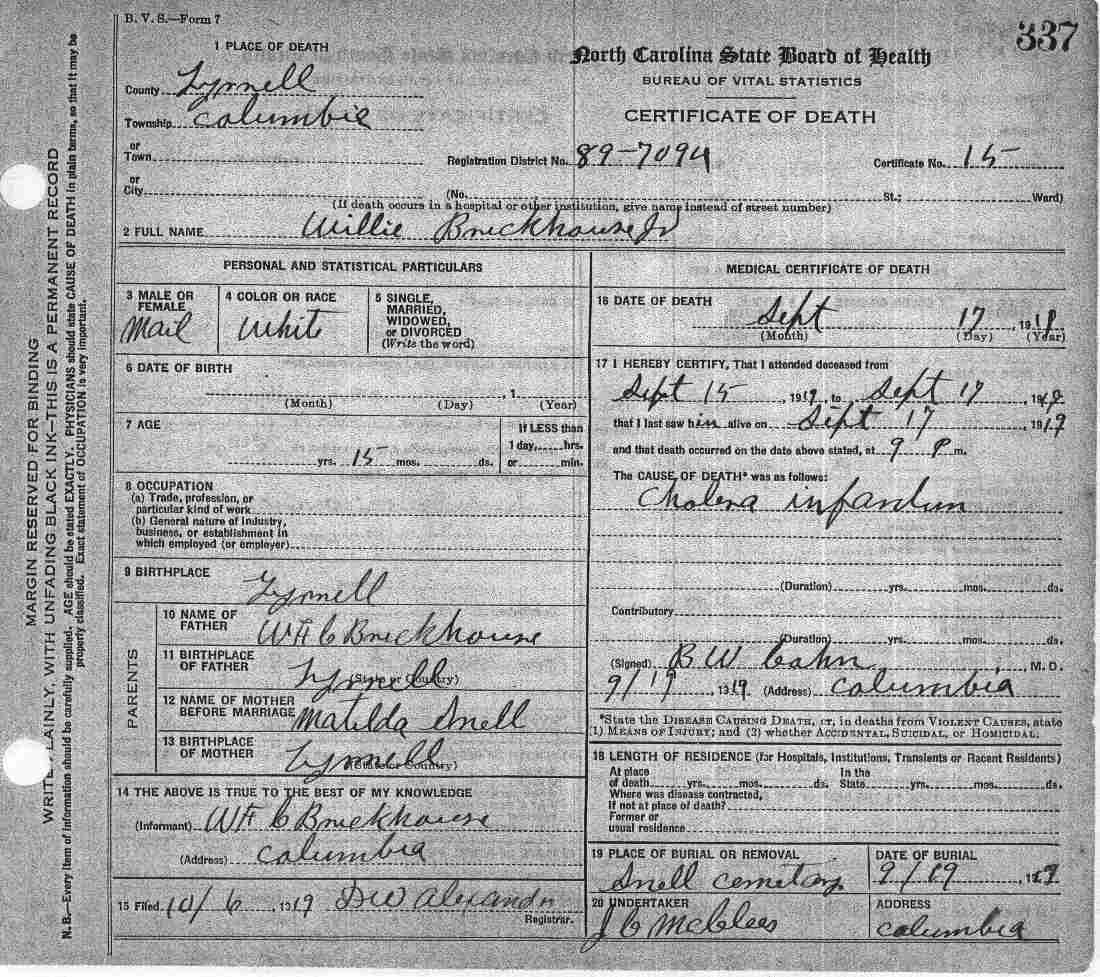 B. V. S.—Form 7
337
1 PLACE OF DEATH
North Carolina State Board of Health
BUREAU OF VITAL STATISTICS
CERTIFICATE OF DEATH
County Tyrrell
Township Columbia
or
Town
Registration District No. 89-7094 Certificate No. 15
or
City (No. St.; Ward)
(If death occurs in a hospital or other institution, give name instead of street number)
2 FULL NAME Willie Brickhouse Jr
PERSONAL AND STATISTICAL PARTICULARS
3 MALE OR FEMALE
Mail
4 COLOR OR RACE
White
5 SINGLE, MARRIED, WIDOWED, or DIVORCED
(Write the word)
6 DATE OF BIRTH
, 1
(Month) (Day) (Year)
7 AGE
yrs. 15 mos. ds.
If LESS than
1 day, hrs.
or min.
8 OCCUPATION
(a) Trade, profession, or
particular kind of work
(b) General nature of industry,
business, or establishment in
which employed (or employer)
9 BIRTHPLACE
Tyrrell
PARENTS
10 NAME OF FATHER
WH C Brickhouse
11 BIRTHPLACE OF FATHER
(State or Country)
Tyrrell
12 NAME OF MOTHER BEFORE MARRIAGE
Matilda Snell
13 BIRTHPLACE OF MOTHER
(State or Country)
Tyrrell
14 THE ABOVE IS TRUE TO THE BEST OF MY KNOWLEDGE
(Informant) WH C Brickhouse
(Address) Columbia
15 Filed 10/6 1919 DW Alexander
Registrar.
MEDICAL CERTIFICATE OF DEATH
16 DATE OF DEATH
Sept 17 1919
(Month) (Day) (Year)
17 I HEREBY CERTIFY, That I attended deceased from
Sept 15, 1919, to Sept 17, 1919
that I last saw him alive on Sept 17, 1919
and that death occurred on the date above stated, at 9 P m.
The CAUSE OF DEATH* was as follows:
Cholera infantum
(Duration) yrs. mos. ds.
Contributory
(Duration) yrs. mos. ds.
(Signed) B W Cahn, M. D.
9/19 1919 (Address) Columbia
*State the DISEASE CAUSING DEATH, or, in deaths from VIOLENT CAUSES, state
(1) MEANS OF INJURY; and (2) whether ACCIDENTAL, SUICIDAL, or HOMICIDAL.
18 LENGTH OF RESIDENCE (for Hospitals, Institutions, Transients or Recent Residents)
At place of death yrs. mos. ds. In the State yrs. mos. ds.
Where was disease contracted,
If not at place of death?
Former or
usual residence
19 PLACE OF BURIAL OR REMOVAL
Snell cemetary
DATE OF BURIAL
9/19, 1919
20 UNDERTAKER
J C McClees
ADDRESS
Columbia
MARGIN RESERVED FOR BINDING
WRITE PLAINLY, WITH UNFADING BLACK INK—THIS IS A PERMANENT RECORD
N. B.—Every item of information should be carefully supplied. AGE should be stated EXACTLY. PHYSICIANS should state CAUSE OF DEATH in plain terms, so that it may be
properly classified. Exact statement of OCCUPATION is very important.